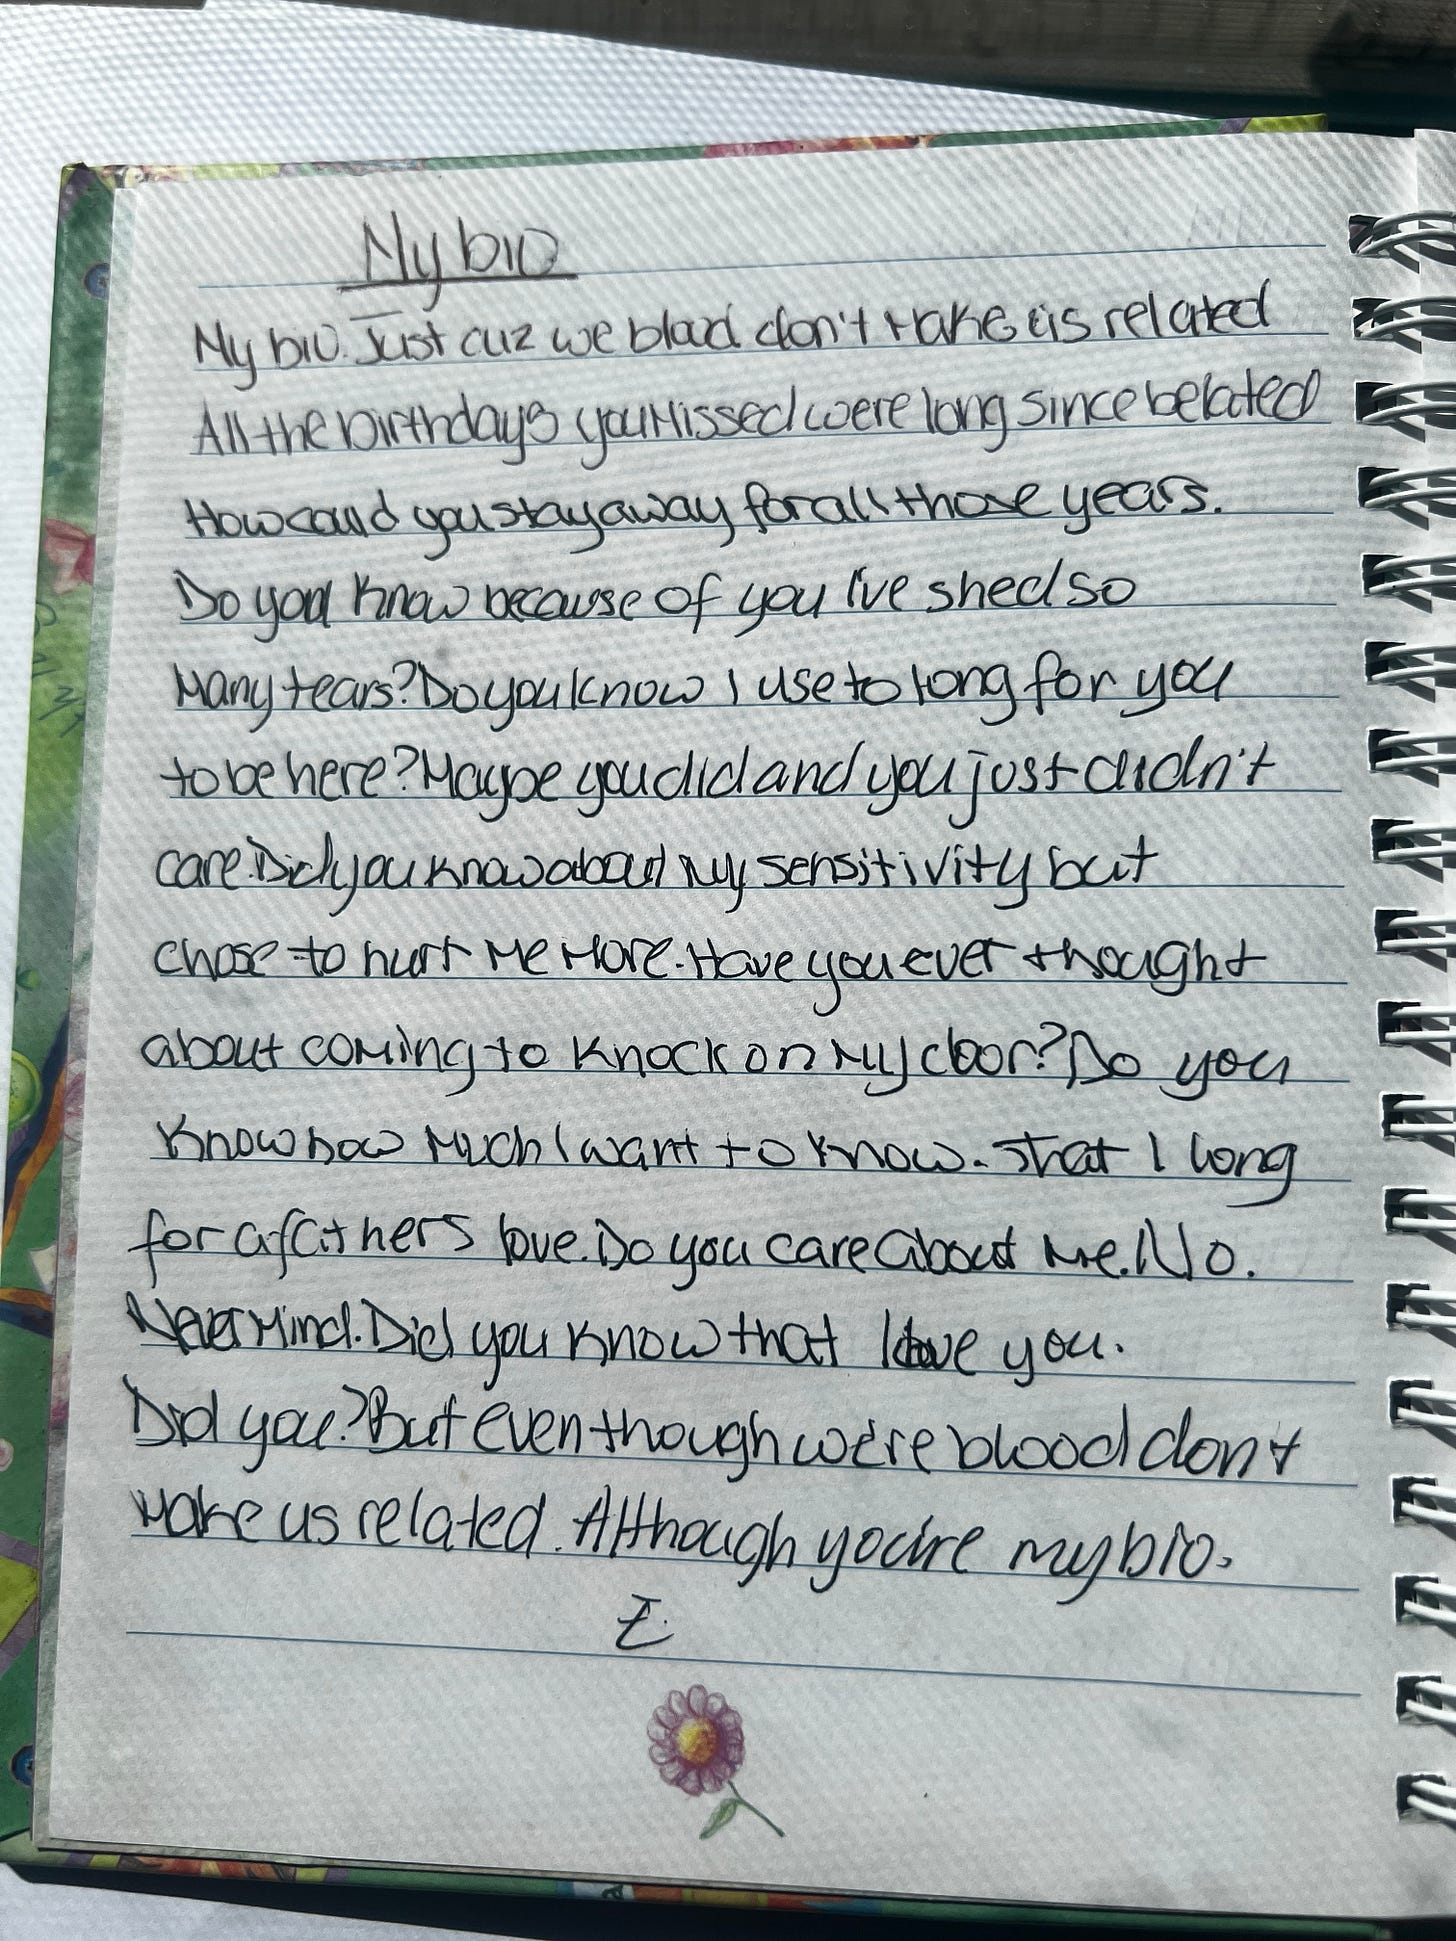 My bio
My bio. Just cuz we blood don't make us related
All the birthdays you missed were long since belated
How could you stay away for all those years.
Do you know because of you I've shed so
Many tears? Do you know I use to long for you
to be here? Maybe you did and you just didn't
care. Did you know about my sensitivity but
chose to hurt me more. Have you ever thought
about coming to knock on my door? Do you
know how much I want to know. That I long
for a fathers love. Do you care about me. No.
Never mind. Did you know that I love you.
Did you? But even though we're blood don't
make us related. Although you're my bio.